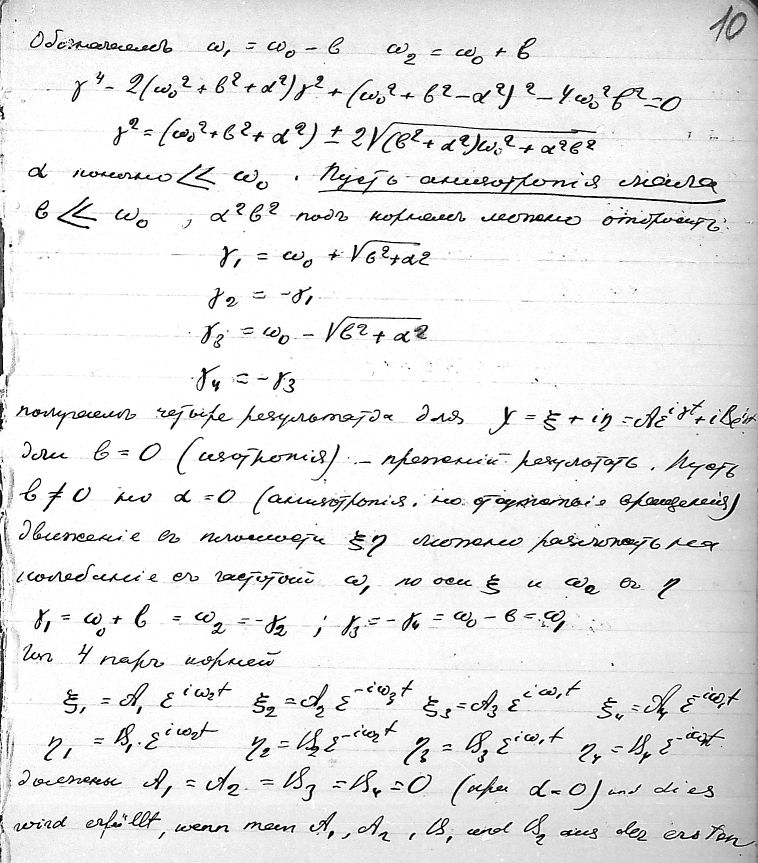 10
Обозначаемъ ω₁ = ω₀ − b ω₂ = ω₀ + b
γ⁴ − 2(ω₀² + b² + α²)γ² + (ω₀² + b² − α²)² − 4ω₀²b² = 0
γ² = (ω₀² + b² + α²) ± 2√(b² + α²)ω₀² + α²b²
α конечно ≪ ω₀. Пусть анизотропія мала
b ≪ ω₀, α²b² подъ корнемъ можно отбросить:
γ₁ = ω₀ + √b²+α²
γ₂ = −γ₁
γ₃ = ω₀ − √b² + α²
γ₄ = −γ₃
получаемъ четыре результата для y = ξ + iη = Aε^{iγt} + iBε^{iγt}
для b = 0 (изотропія) – прежній результатъ. Пусть
b ≠ 0 но α = 0 (анизотропія, но отсутствіе вращенія)
движеніе въ плоскости ξη можно разложить на
колебаніе съ частотой ω₁ по оси ξ и ω₂ въ η
γ₁ = ω₀ + b = ω₂ = −γ₂ ; γ₃ = −γ₄ = ω₀ − b = ω₁
Из 4 паръ корней
ξ₁ = A₁ ε^{iω₂t} ξ₂ = A₂ ε^{−iω₂t} ξ₃ = A₃ ε^{iω₁t} ξ₄ = A₄ ε^{−iω₁t}
η₁ = B₁ ε^{iω₂t} η₂ = B₂ ε^{−iω₂t} η₃ = B₃ ε^{iω₁t} η₄ = B₄ ε^{−iω₁t}
должны A₁ = A₂ = B₃ = B₄ = 0 (при α = 0) und dies
wird erfüllt, wenn man A₁, A₂, B₁ und B₂ aus der ersten